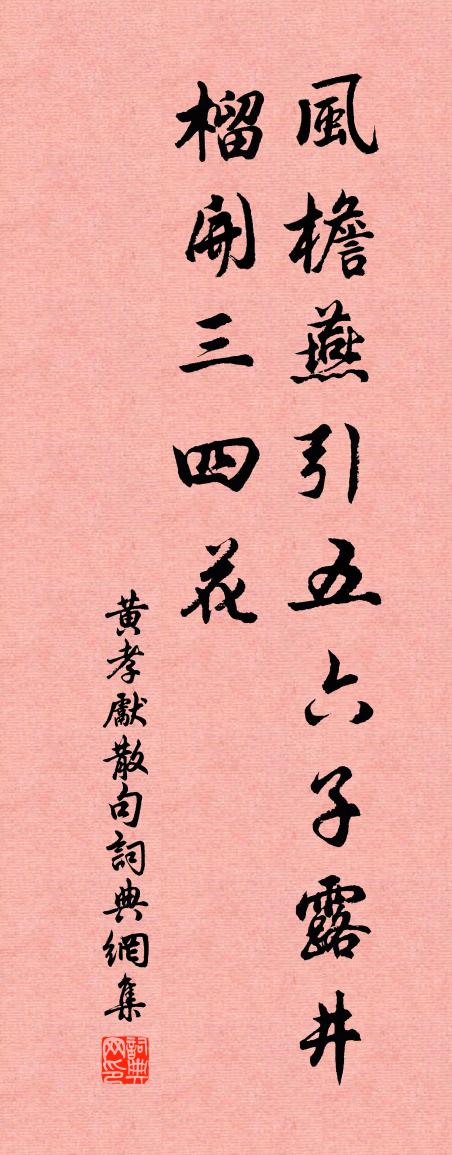 風檐燕引五六子露井
榴開三四花
黄孝獻散句詞典網集
詞典网印